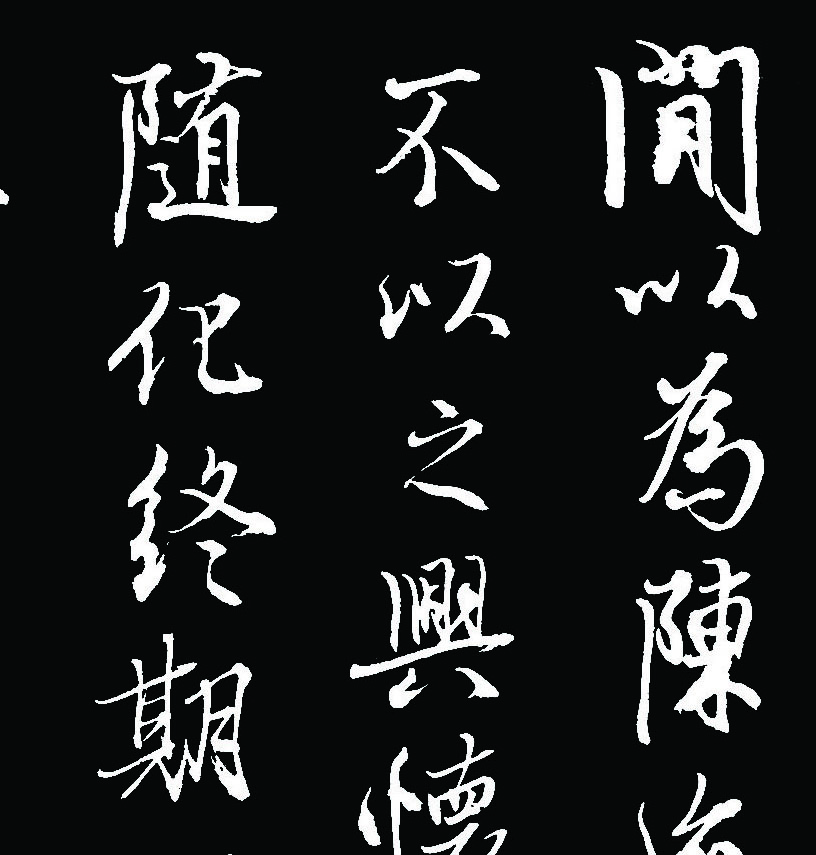 閒以為陳
不以之興懷
随化終期